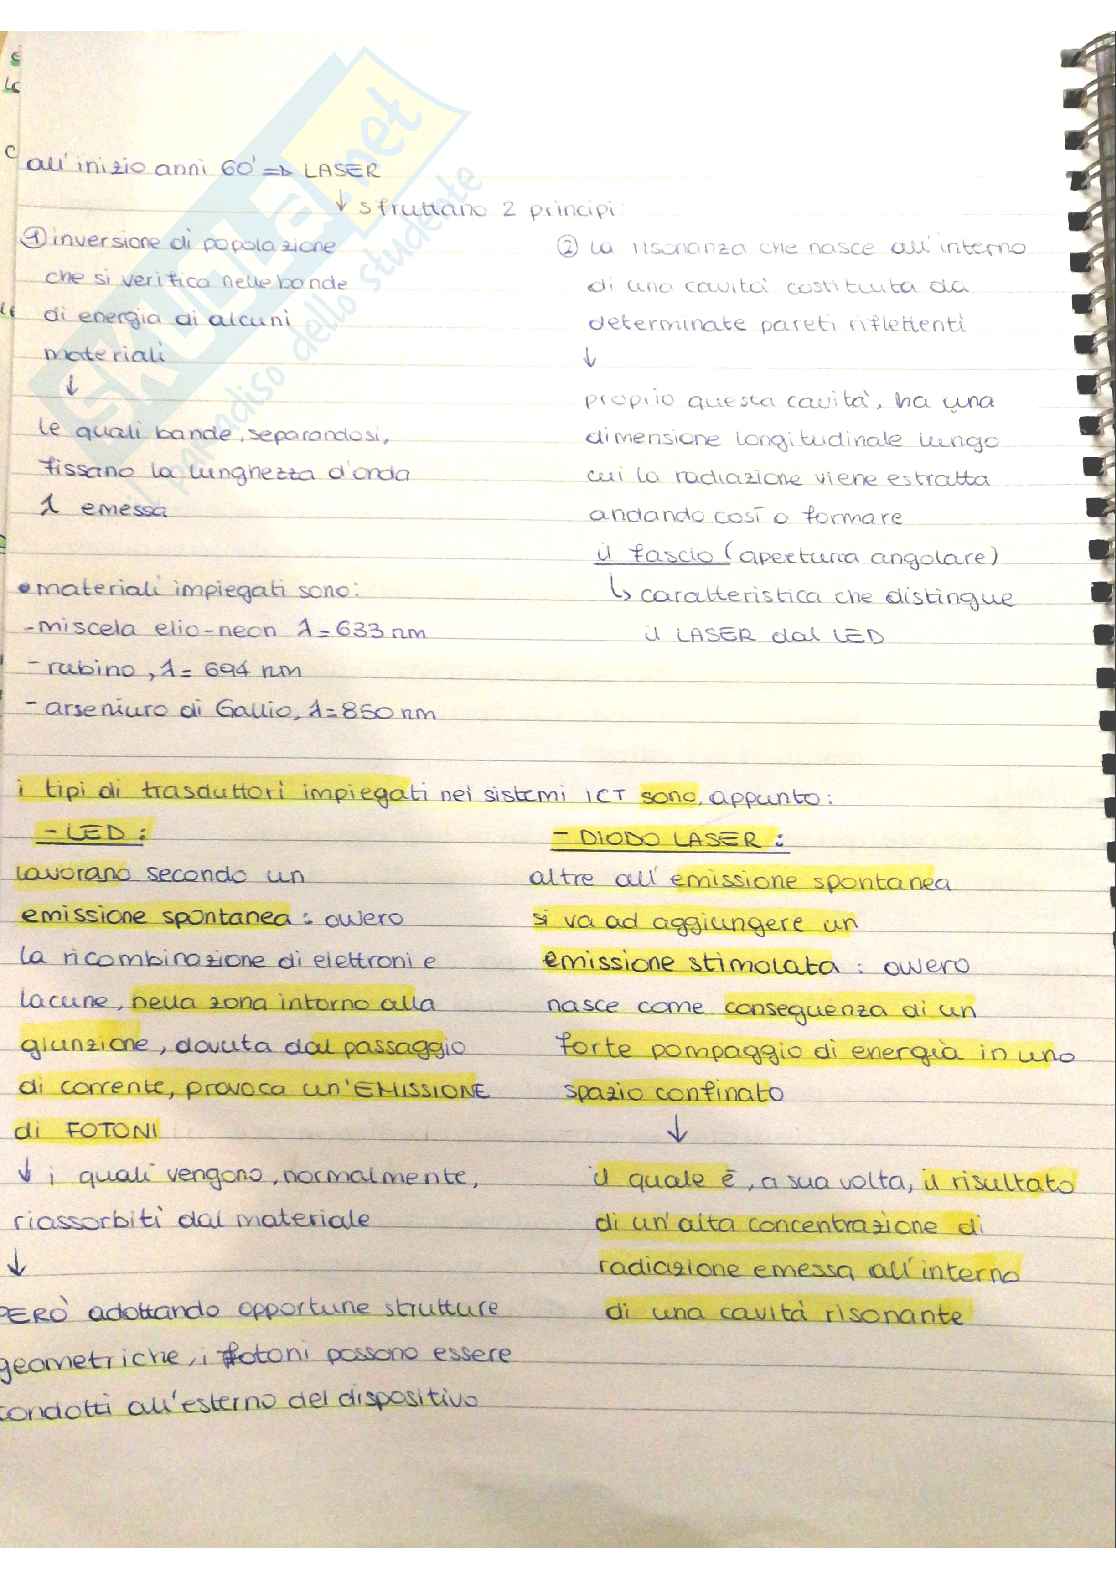 all'inizio anni 60' => LASER
↓ sfruttano 2 principi:
① inversione di popolazione
che si verifica nelle bande
di energia di alcuni
materiali
↓
le quali bande, separandosi,
fissano la lunghezza d'onda
λ emessa
② la risonanza che nasce all'interno
di una cavità costituita da
determinate pareti riflettenti
↓
proprio questa cavità, ha una
dimensione longitudinale lungo
cui la radiazione viene estratta
andando così a formare
il fascio (apertura angolare)
↳ caratteristica che distingue
il LASER dal LED
• materiali impiegati sono:
- miscela elio-neon λ = 633 nm
- rubino, λ = 694 nm
- arseniuro di Gallio, λ = 850 nm
i tipi di trasduttori impiegati nei sistemi ICT sono, appunto:
- LED:
lavorano secondo un
emissione spontanea: ovvero
la ricombinazione di elettroni e
lacune, nella zona intorno alla
giunzione, dovuta dal passaggio
di corrente, provoca un'EMISSIONE
di FOTONI
↓ i quali vengono, normalmente,
riassorbiti dal materiale
↓
PERÒ adottando opportune strutture
geometriche, i fotoni possono essere
condotti all'esterno del dispositivo
- DIODO LASER:
altre all'emissione spontanea
si va ad aggiungere un
emissione stimolata: ovvero
nasce come conseguenza di un
forte pompaggio di energia in uno
spazio confinato
↓
il quale è, a sua volta, il risultato
di un'alta concentrazione di
radiazione emessa all'interno
di una cavità risonante
SKUOLA.net
il paradiso dello studente